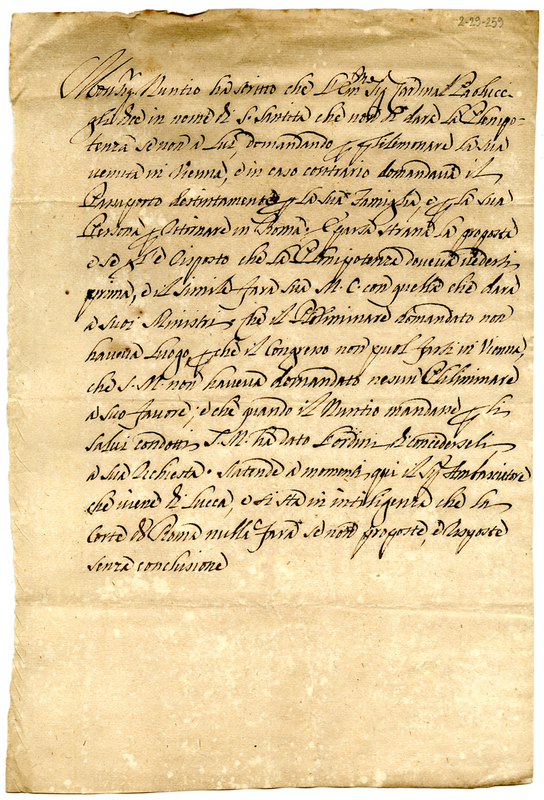 2-29-259
Monsig.r Nuntio ha scritto che L'Em.mo Sig.r Cardinal Paolucci
gli dice in nome di S. Santità che non si darà la Plenipo-
tenza se non a Lui, domandando p preliminare la sua
venuta in Vienna, è in caso contrario domandava il
Passaporto distintamente p la sua famiglia, e p la sua
Persona p ritornare in Roma. È parsa strana la proposta
e se gl'è risposto che la Plenipotenza doveva vedersi
prima, è il simile farà sua M. C. con quella che darà
a suoi Ministri, che il Preliminare domandato non
haveva luogo, p che il Congresso non puol farsi in Vienna,
che S. M. non haveva domandato nesun Preliminare
a suo favore; è che quando il Nuntio mandasse p li
salvi condotti S. M. ha dato l'ordini di concederseli
a sua richiesta. Si atende a momenti qui il Sig.r Ambasciatore
che viene di Lucca, e si sta in inteligenza che la
Corte di Roma nulla farà se non proposte, è risposte
senza conclusione